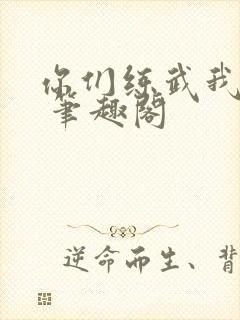 你们练武我
笔趣阁
逆命而生、背